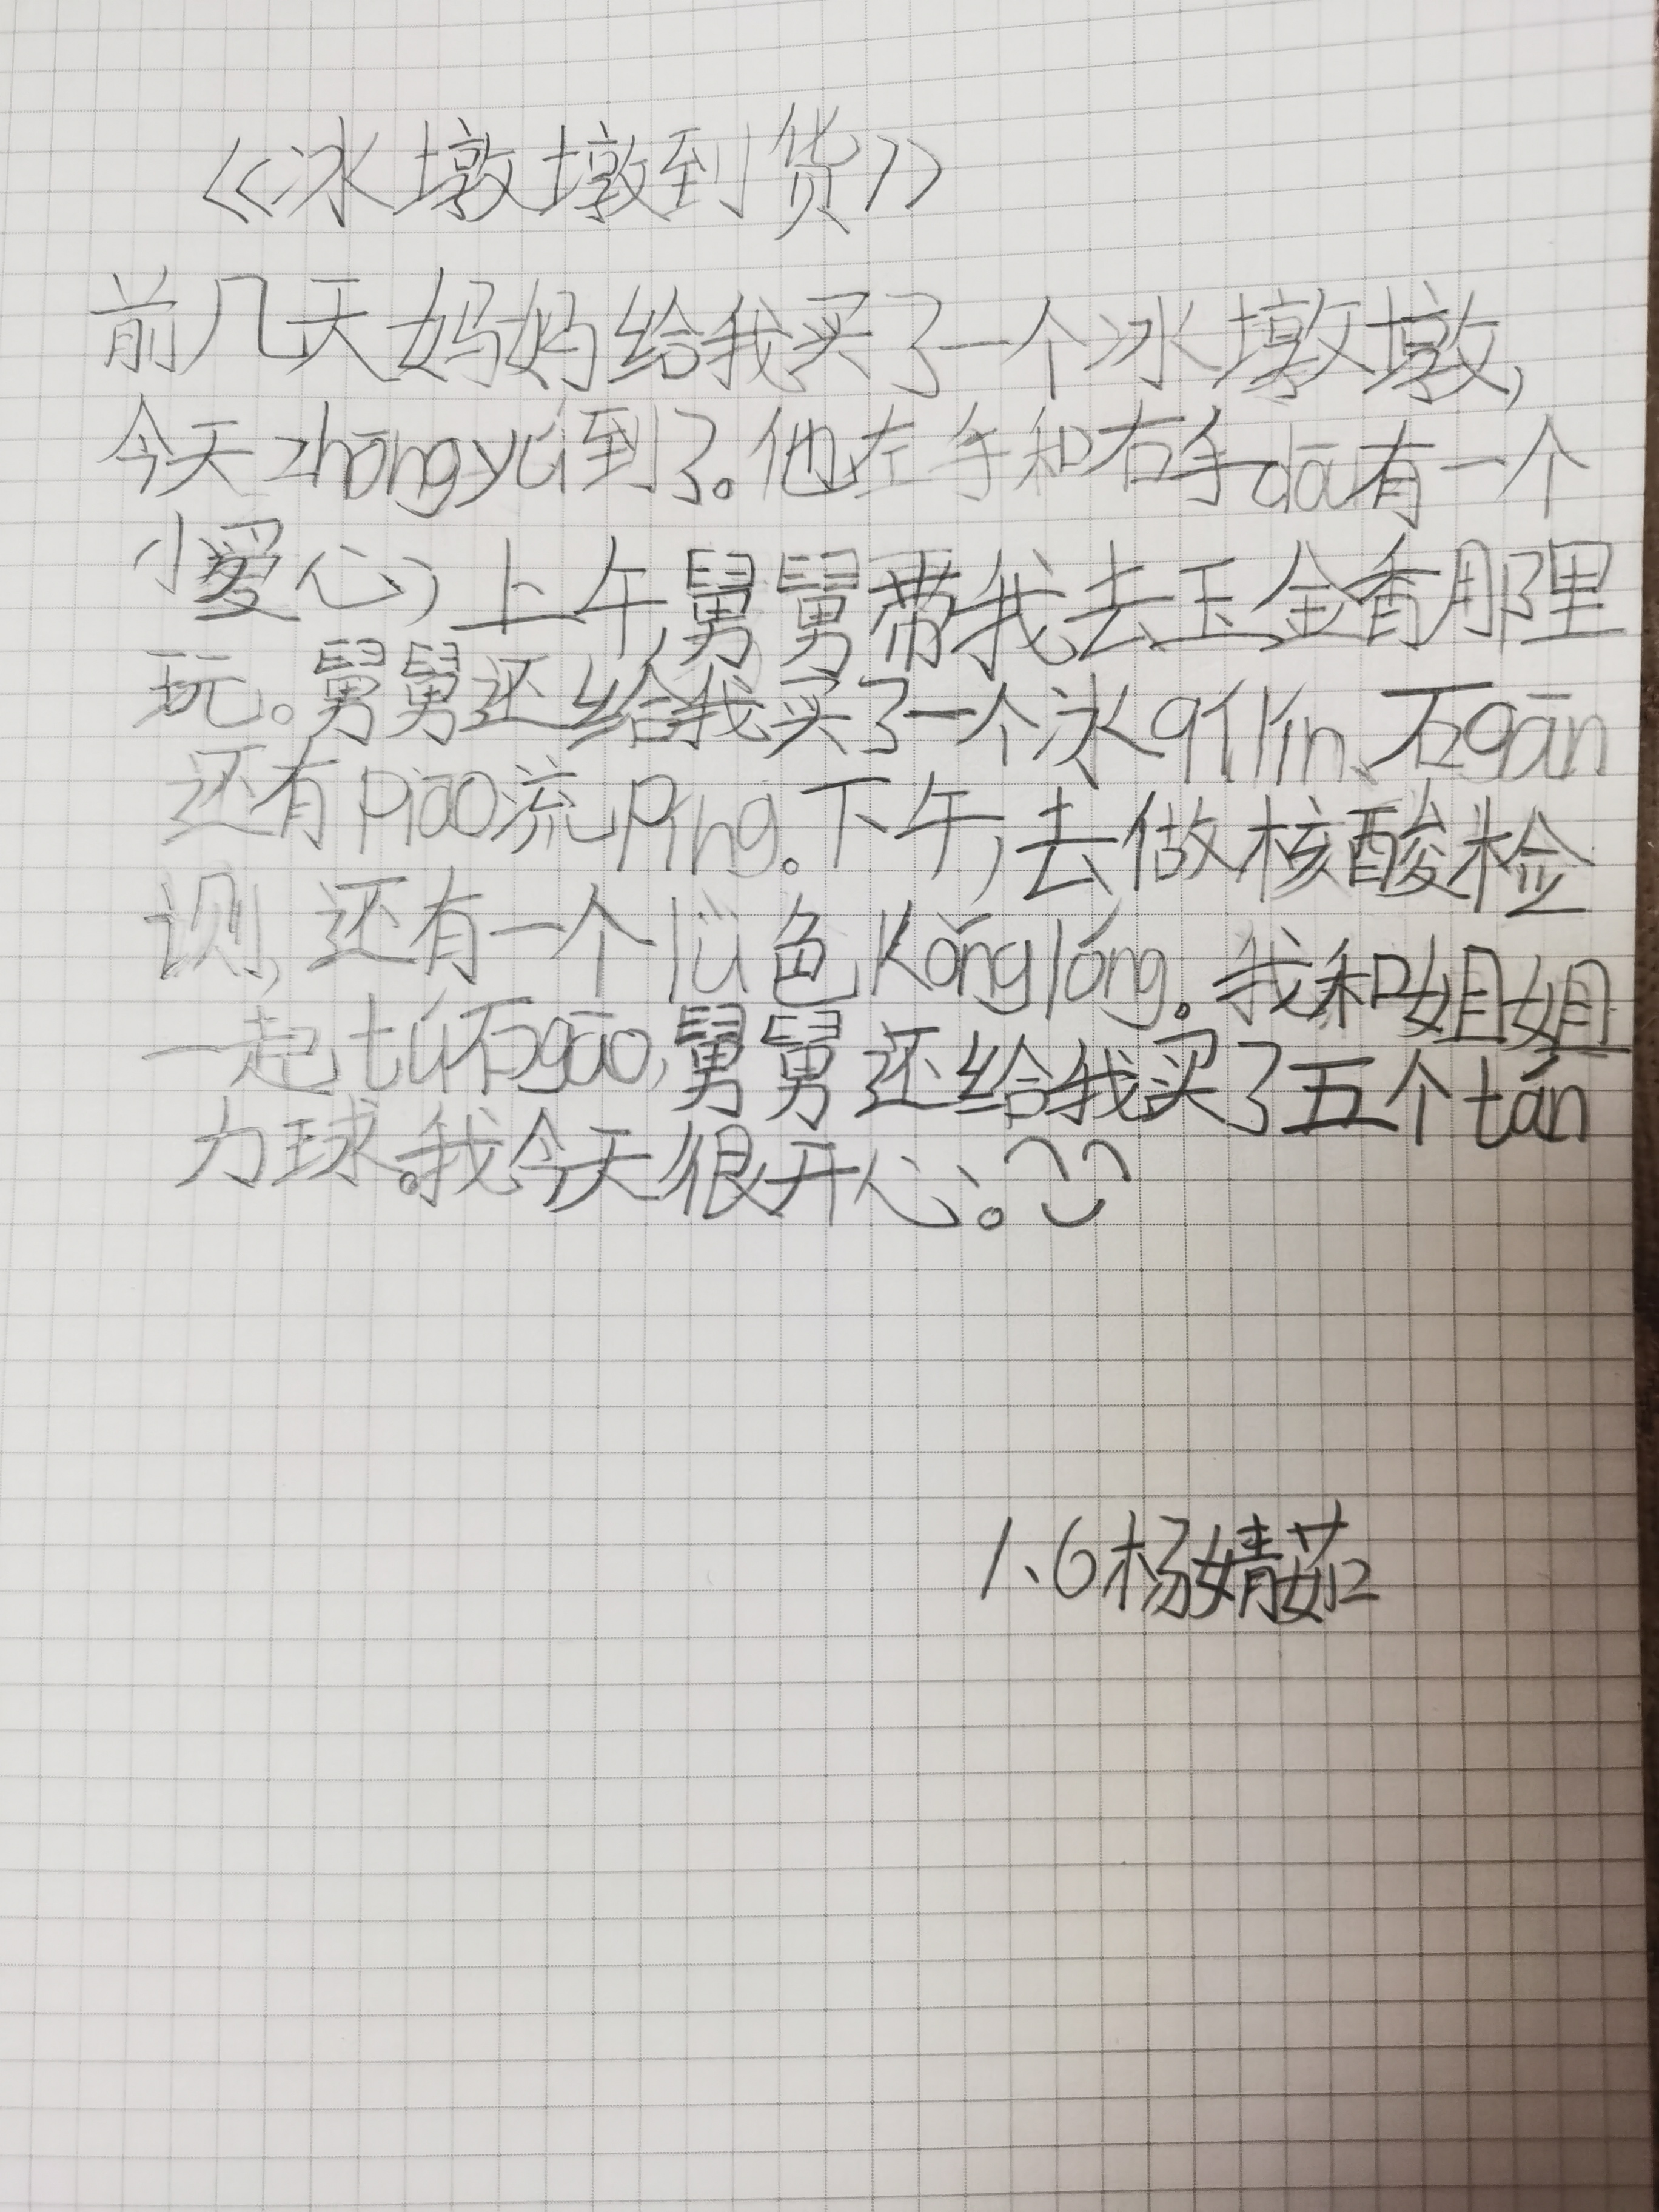 《冰墩墩到货》
前几天妈妈给我买了一个冰墩墩,
今天zhōngyú到了。他左手和右手dōu有一个
小爱心,上午,舅舅带我去玉金香那里
玩。舅舅还给我买了一个冰qílín、石gān
还有piāo流píng。下午,去做核酸检
测,还有一个lǜ色kǒnglóng。我和姐姐
一起tú石gāo,舅舅还给我买了五个tán
力球。我今天很开心。
1.6杨婧茹